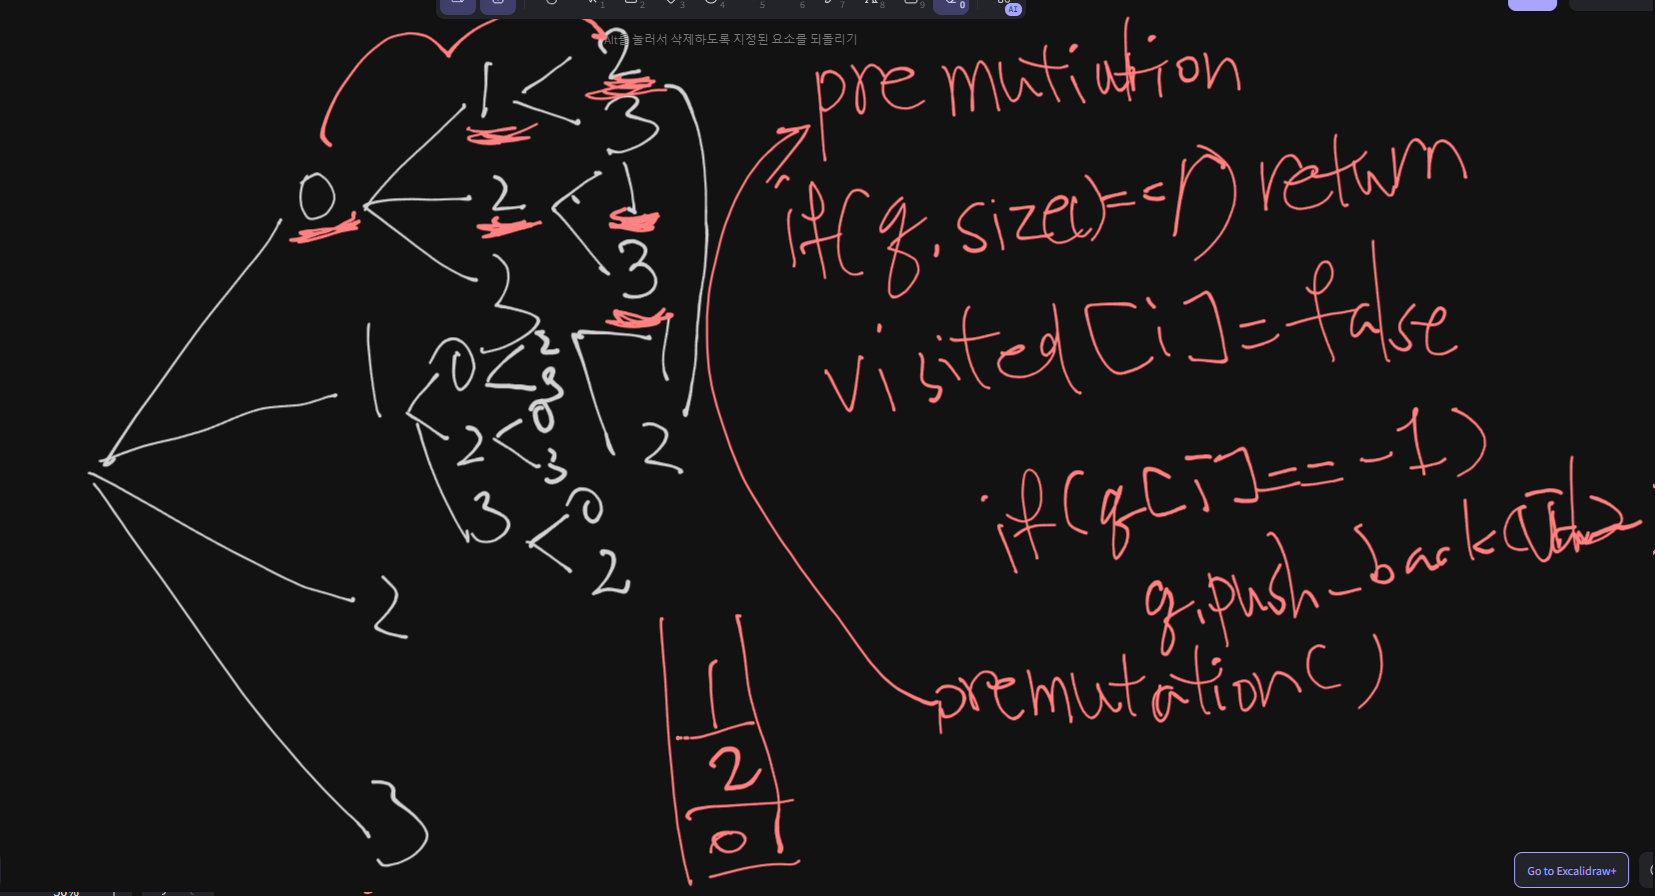 Alt을 눌러서 삭제하도록 지정된 요소를 되돌리기
1 2 3 4 5 6 7 8 9 0
AI
0
1
2
3
2
1
3
3
1
2
1
0
2
3
2
0
3
3
0
2
2
3
premutiution
if(q.size()==n) return
visited[i]=false
if(q[i]==-1)
q.push_back(
premutation()
1
2
0
50%
Go to Excalidraw+